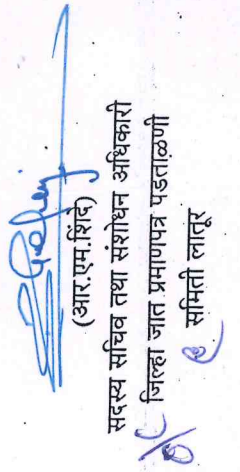 (आर.एम.शिंदे)
सदस्य सचिव तथा संशोधन अधिकारी
जिल्हा जात प्रमाणपत्र पडताळणी
समिती लातूर